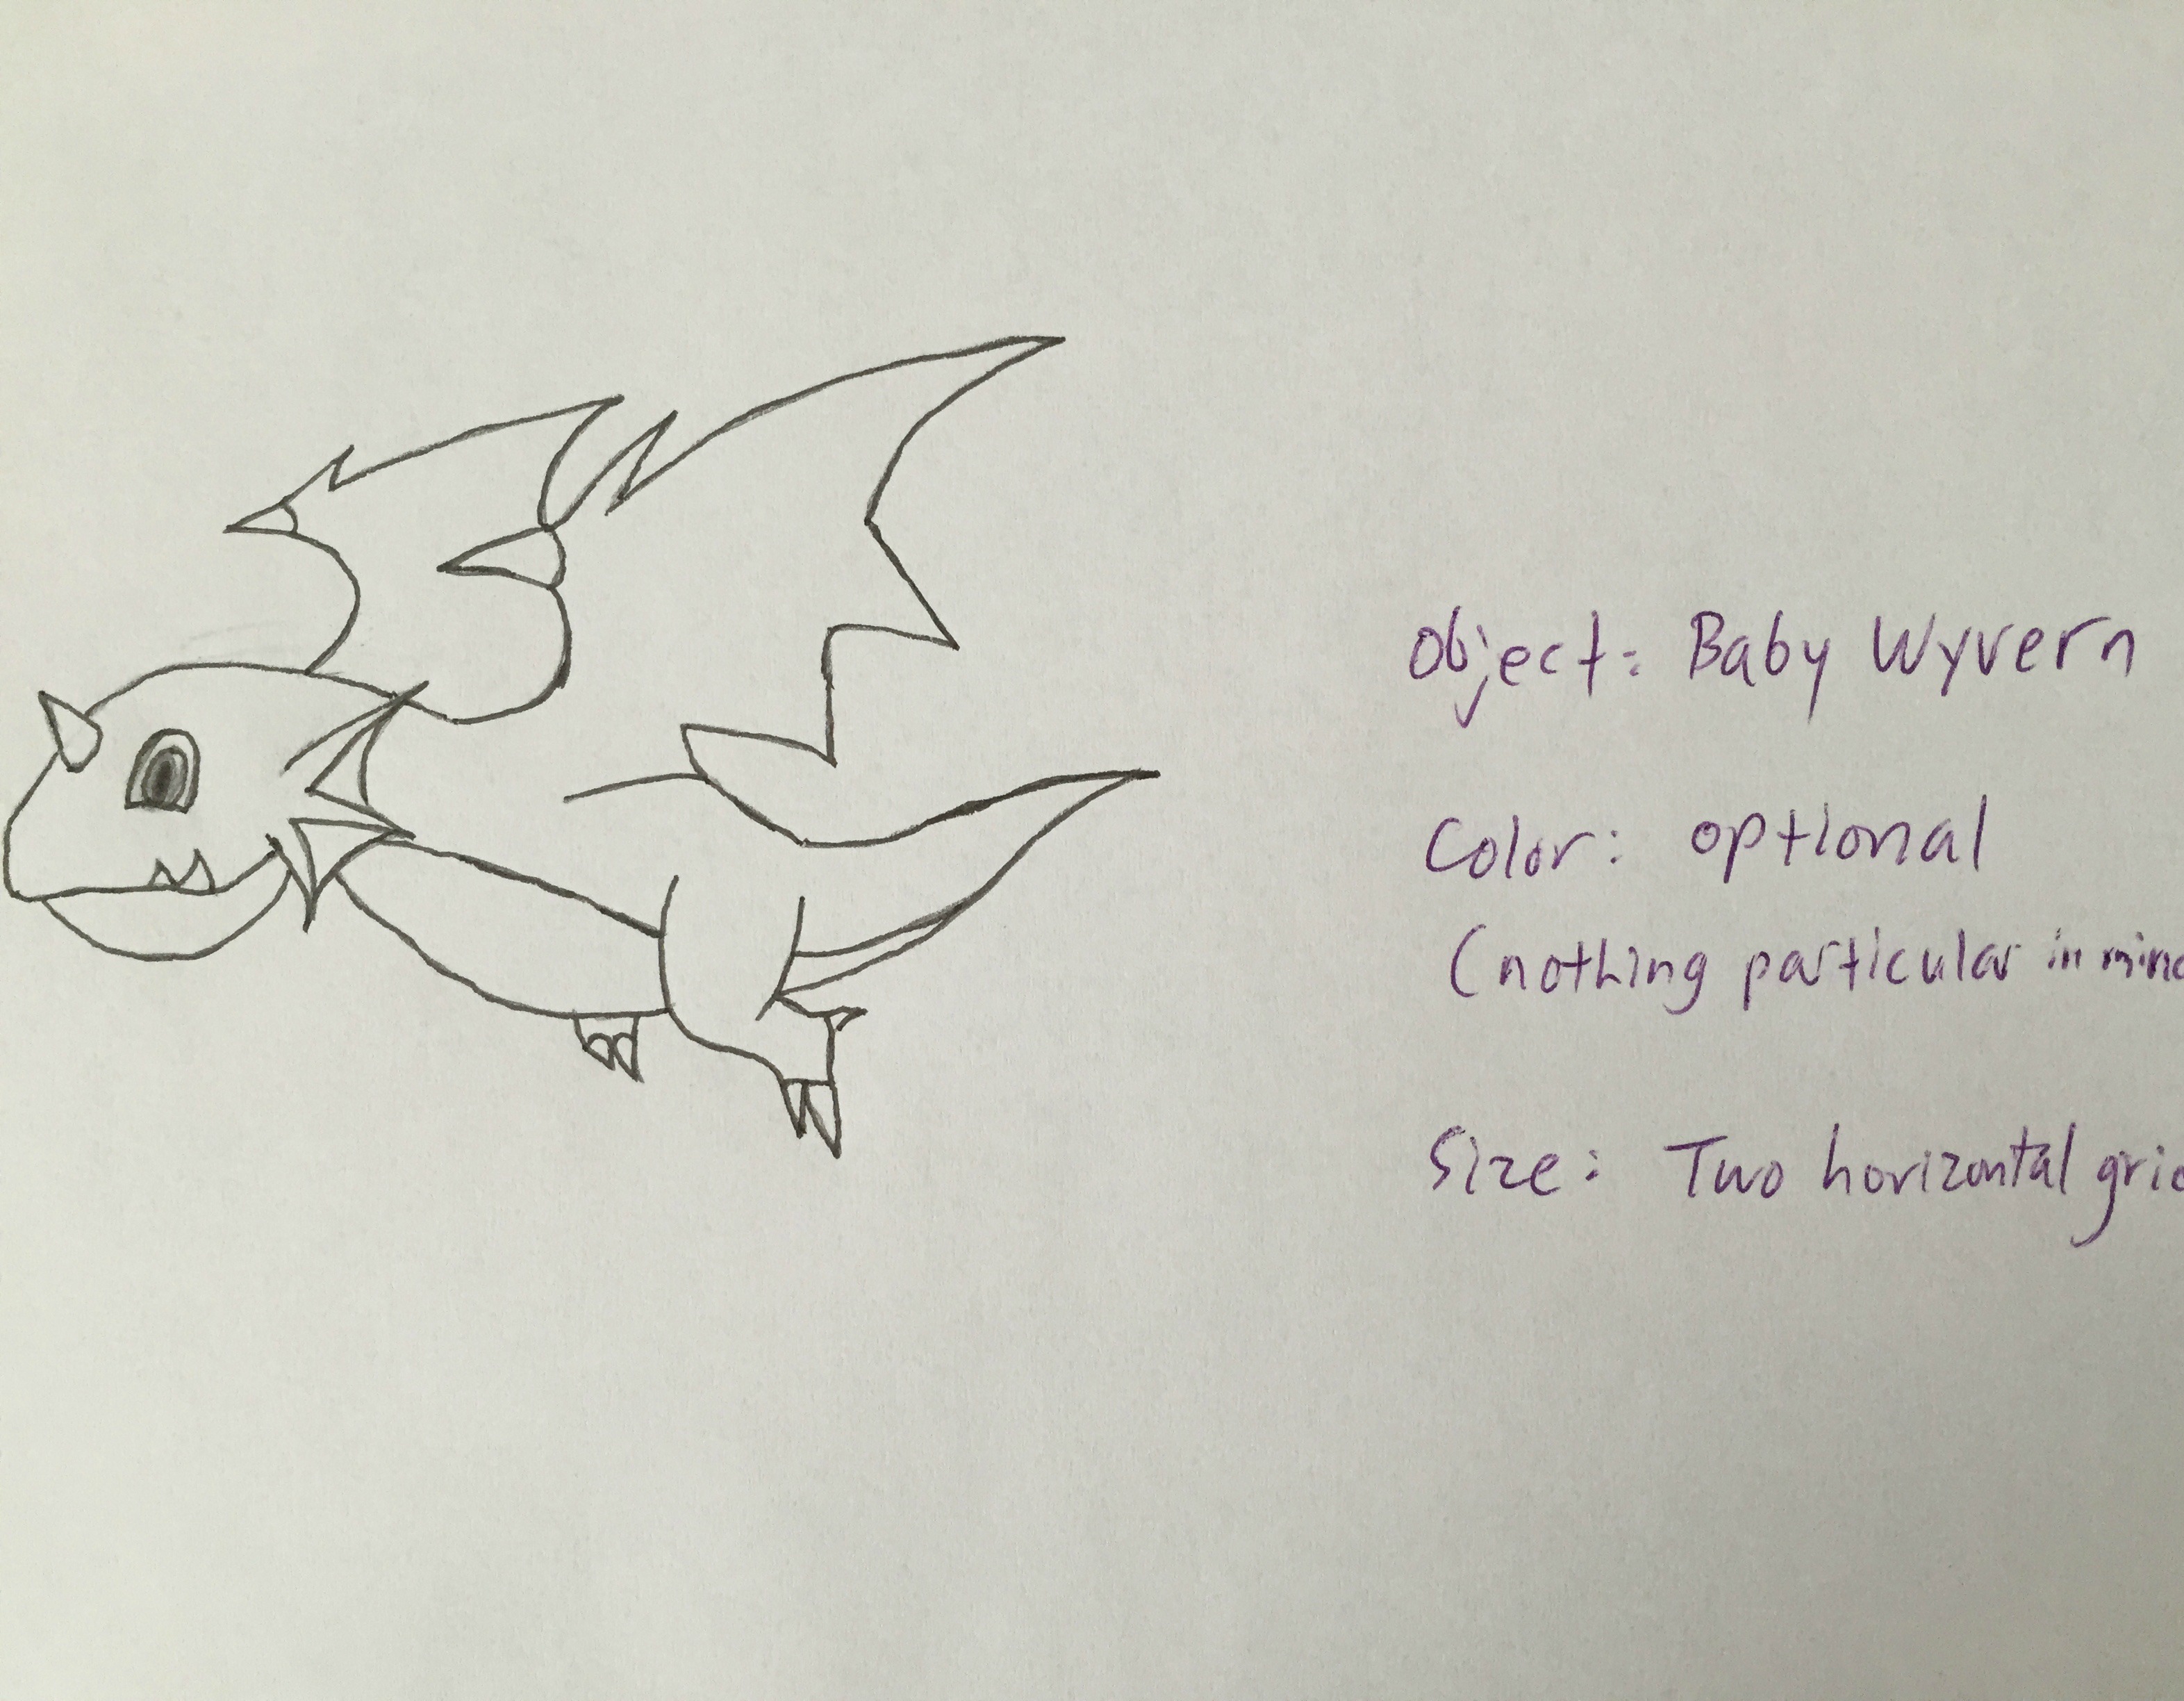 Object: Baby Wyvern
Color: optional
(nothing particular in
Size: Two horizontal